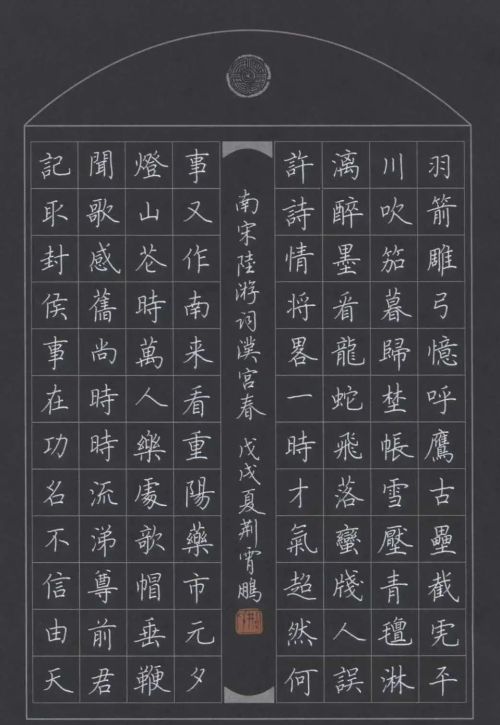 羽箭雕弓憶呼鷹古壘截虎平
川吹笳暮歸埜帳雪壓青氊淋
漓醉墨看龍蛇飛落蠻牋人誤
許詩情将畧一時才氣超然何
南宋陸游词漢宮春 戊戌夏荆霄鵬
事又作南来看重陽藥市元夕
燈山花時萬人樂處欹帽垂鞭
聞歌感舊尚時時流涕尊前君
記取封侯事在功名不信由天